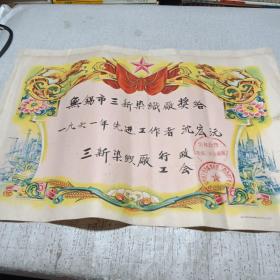 無錫市三新染織廠獎給
一九六一年先進工作者 沈宏沅
三新染織廠 行政
工会